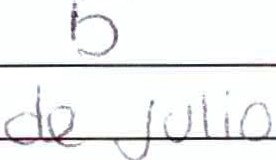 5
de julio